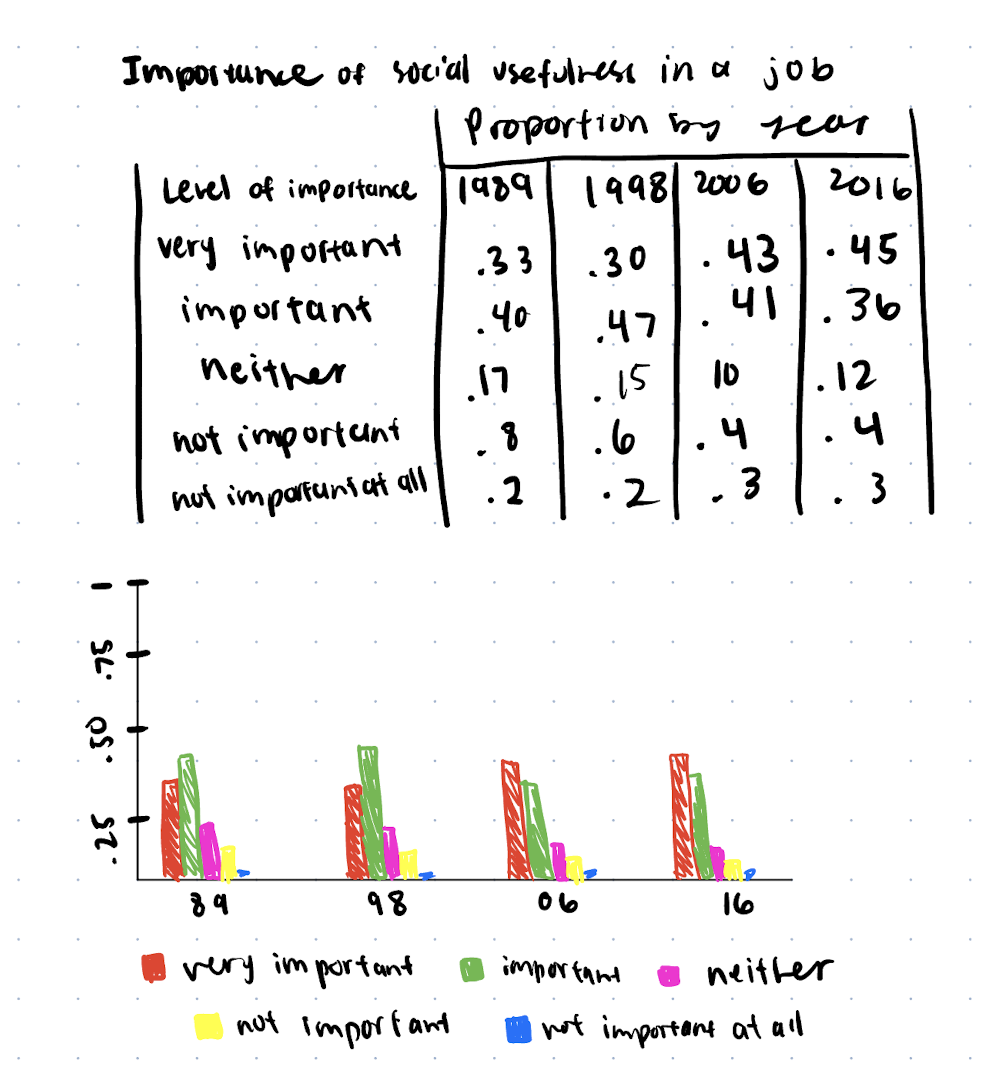 Importance of social usefulness in a job
Proportion by year
Level of importance 1989 1998 2006 2016
very important .33 .30 .43 .45
important .40 .47 .41 .36
neither .17 .15 10 .12
not important .8 .6 .4 .4
not important at all .2 .2 .3 .3
1
.75
.50
.25
89 98 06 16
very important important neither
not important not important at all